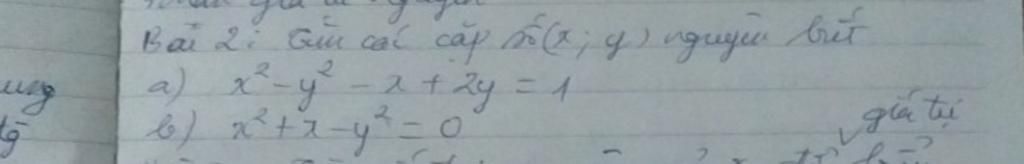 Bài 2: Tìm các cặp số (x; y) nguyên biết
a) x² - y² - x + 2y = 1
b) x² + x - y² = 0
giá trị